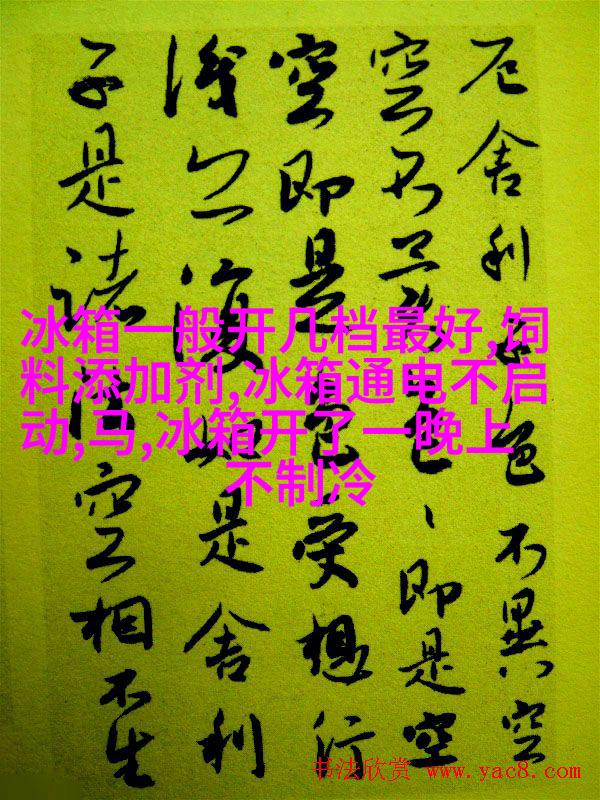 厄舍利子色不異空
空不異色、即是空
空即是色受想行
識亦復如是舍利
子是諸法空相不生
冰箱一般开几档最好,饲
料添加剂,冰箱通电不启
动,马,冰箱开了一晚上
不制冷
书法欣赏 www.yac8.com